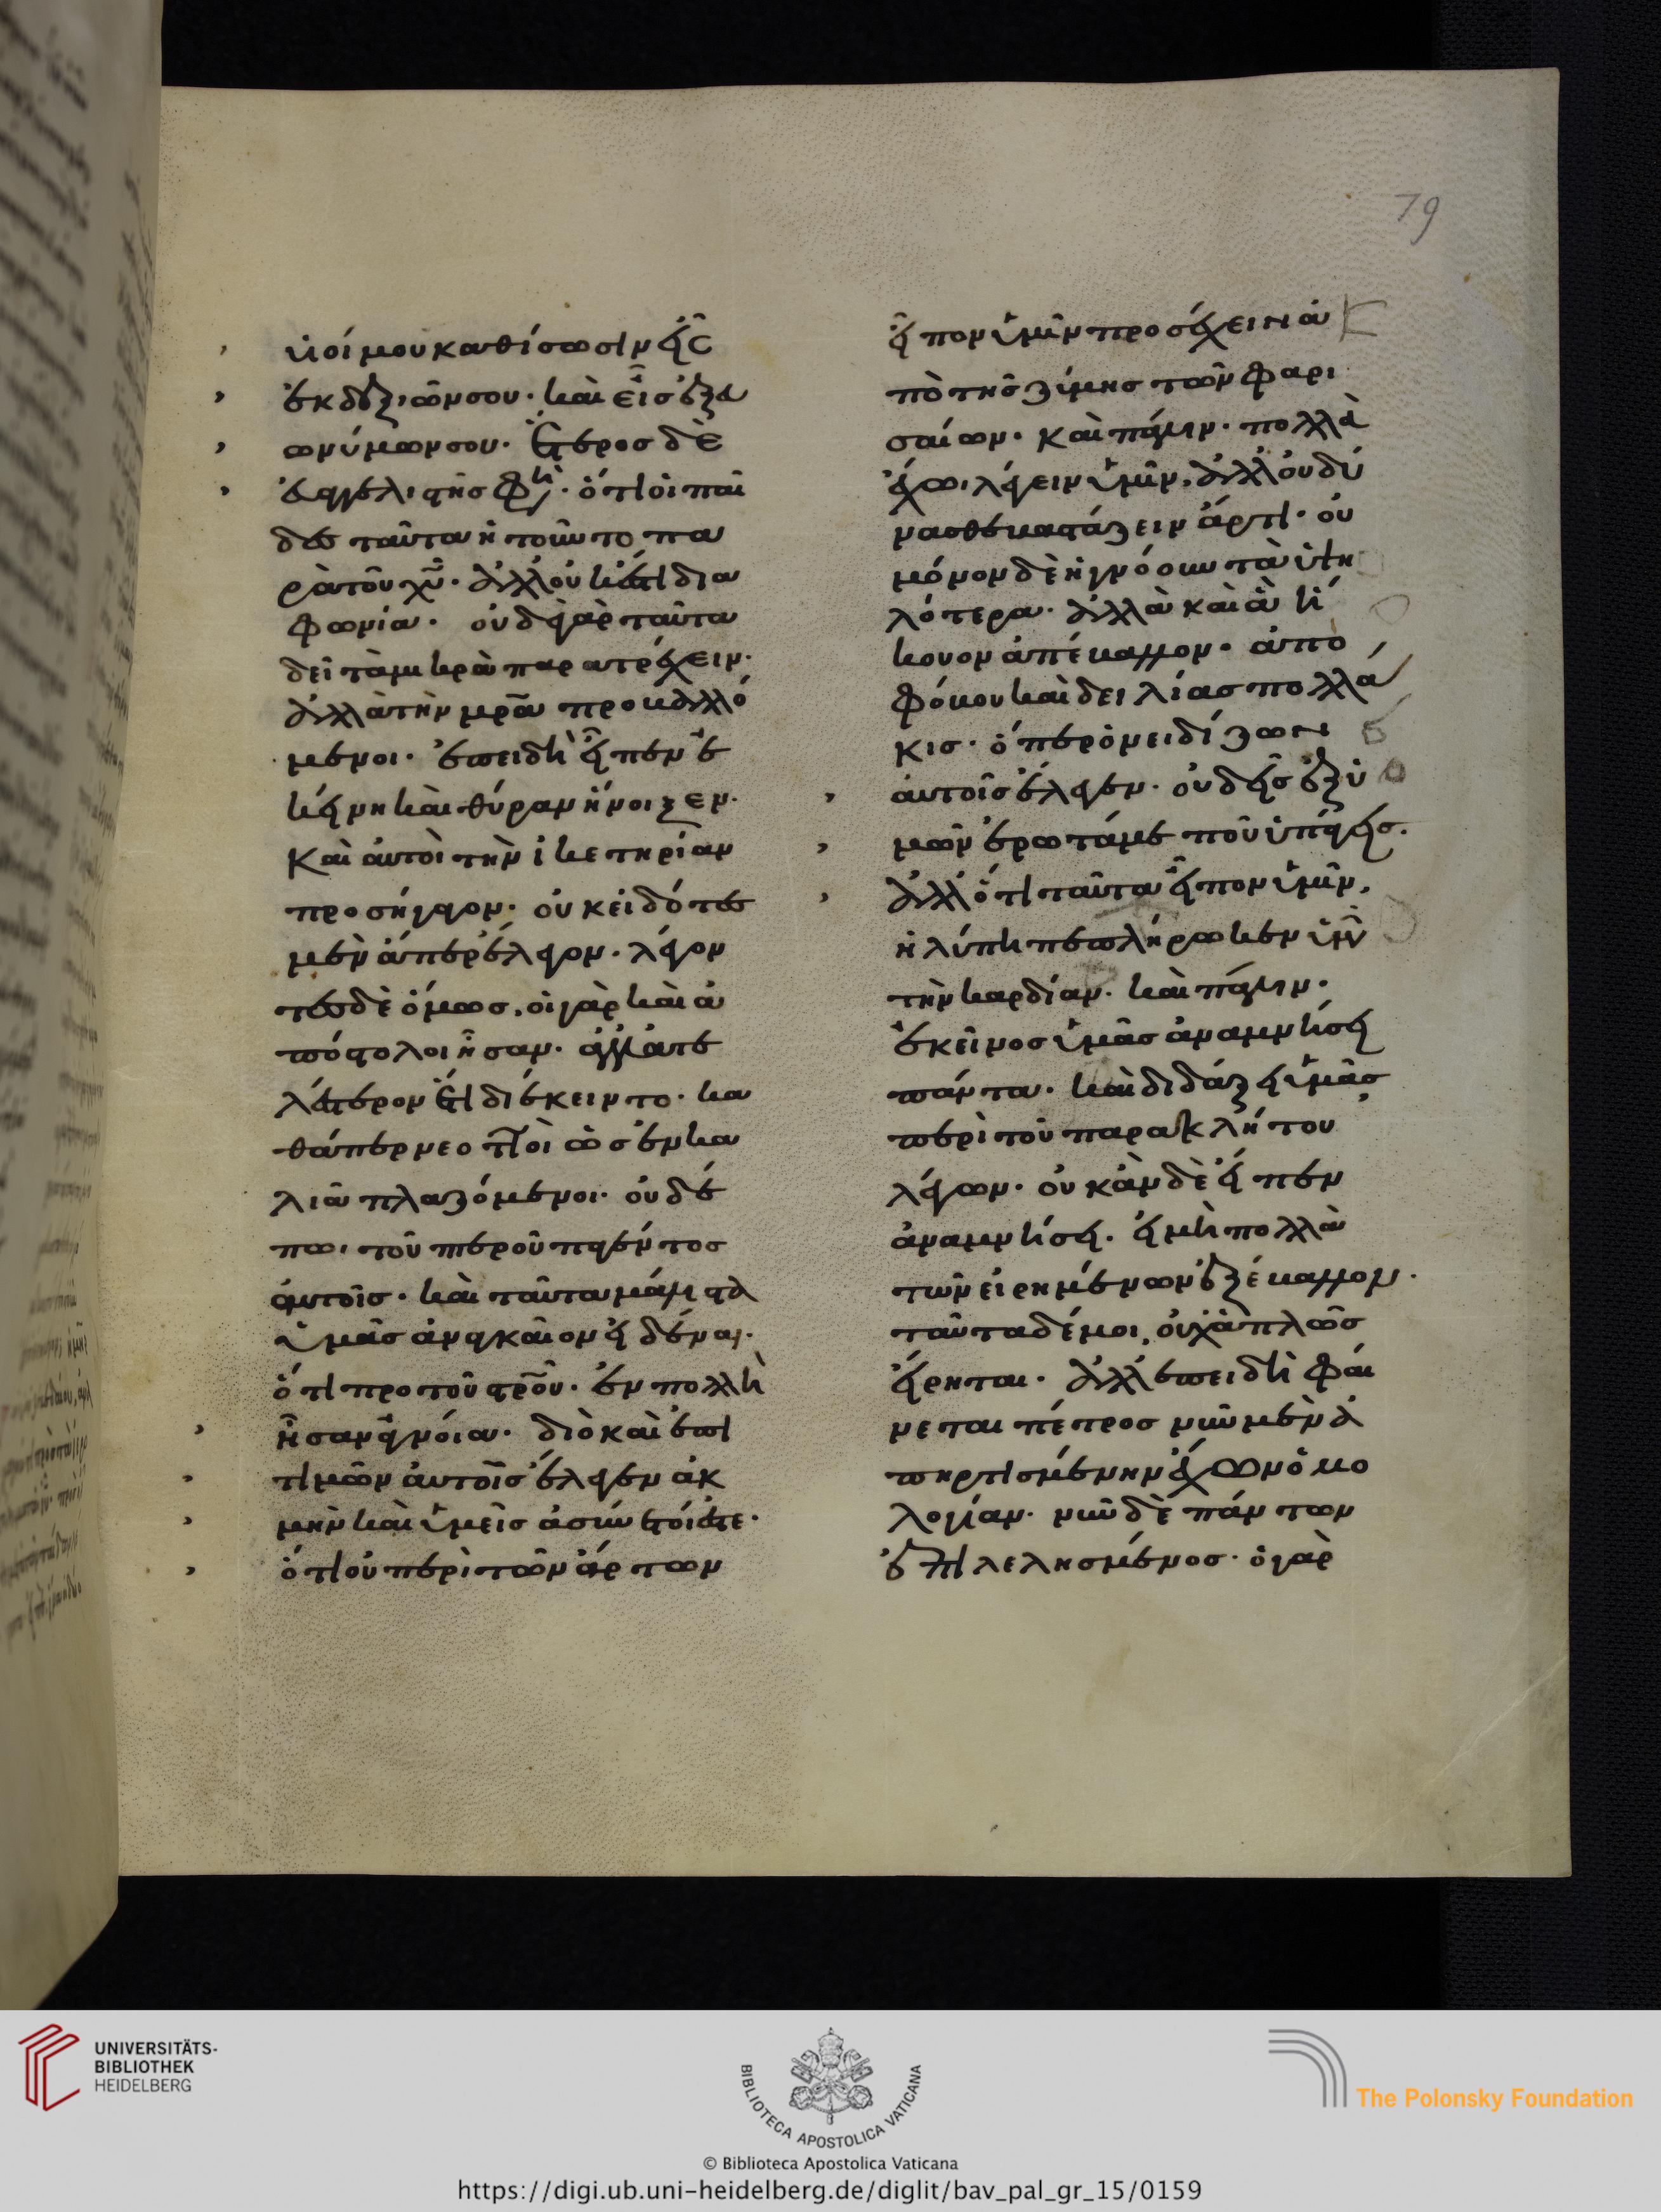 79
υἱοί μου καθίσωσιν εἷς
ἐκ δεξιῶν σου· καὶ εἷς ἐξ εὐ
ωνύμων σου. ἕτερος δὲ
εὐαγγελιστής φη· ὅτι οἱ παῖ
δες ταῦτα ᾐτοῦντο πα
ρὰ τοῦ χυ· ἀλλ' οὐκ ἔστι δια
φωνία· οὐδὲ γὰρ ταῦτα
δεῖ τὰ μικρὰ παρατρέχειν·
ἀλλὰ τὴν μρα προβαλλό
μενοι· ἐπειδὴ εἶπεν ἐ
κείνη καὶ θύραν ἤνοιξεν·
Καὶ αὐτοὶ τὴν ἱκετηρίαν
προσήγαγον· οὐκ εἰδότες
μὲν ἅπερ ἔλεγον· λέγον
τες δὲ ὅμως. οἱ γὰρ καὶ ἀ
πόστολοι ἦσαν· ἀλλ' ἀτε
λέστερον ἔτι διέκειντο· κα
θάπερ νεοττοὶ ὡς ἐν κα
λιᾶ πλαζόμενοι· οὐδέ
πω τοῦ πτεροῦ παγέντος
αὐτοῖς· καὶ ταῦτα μάλιστα
ὑμᾶς ἀναγκαῖον εἰδέναι·
ὅτι προ τοῦ στρου· ἐν πολλῆ
ἦσαν ἀγνοία· διὸ καὶ ἐπι
τιμῶν αὐτοῖς ἔλεγεν ἀκ
μὴν καὶ ὑμεῖς ἀσύνετοί ἐστε·
ὅτι οὐ περὶ τῶν ἄρτων
εἶπον ὑμῖν προσέχειν ἀ
πὸ τῆς ζύμης τῶν φαρι
σαίων· καὶ πάλιν· πολλὰ
ἔχω λέγειν ὑμῖν, ἀλλ' οὐ δύ
νασθε βαστάζειν ἄρτι· οὐ
μόνον δὲ ἠγνόουν τὰ ὑψη
λότερα· ἀλλὰ καὶ ἃ ἤ
κουον ἀπέβαλλον· ἀπὸ
φόβου καὶ δειλίας πολλά
κις· ὅπερ ὀνειδίζων
αὐτοῖς ἔλεγεν· οὐδεὶς ἐξ ὑ
μῶν ἐρωτᾷ με ποῦ ὑπάγεις·
ἀλλ' ὅτι ταῦτα εἶπον ὑμῖν,
ἡ λύπη πεπλήρωκεν ὑμῶν
τὴν καρδίαν· καὶ πάλιν·
ἐκεῖνος ὑμᾶς ἀναμνήσει
πάντα· καὶ διδάξει ὑμᾶς
περὶ τοῦ παρακλήτου
λέγων· οὐκ ἂν δὲ εἶπεν
ἀναμνήσει· εἰ μὴ πολλὰ
τῶν εἰρημένων ἐξέβαλλον·
ταῦτα δέ μοι, οὐχ ἁπλῶς
εἴρηται· ἀλλ' ἐπειδὴ φαί
νεται πέτρος νῦν μὲν ἀ
πηρτισμένην ἔχων ὁμο
λογίαν· νῦν δὲ πάντων
ἐπιλελησμένος· ὁ γὰρ
UNIVERSITÄTS-
BIBLIOTHEK
HEIDELBERG
BIBLIOTECA APOSTOLICA VATICANA
The Polonsky Foundation
© Biblioteca Apostolica Vaticana
https://digi.ub.uni-heidelberg.de/diglit/bav_pal_gr_15/0159